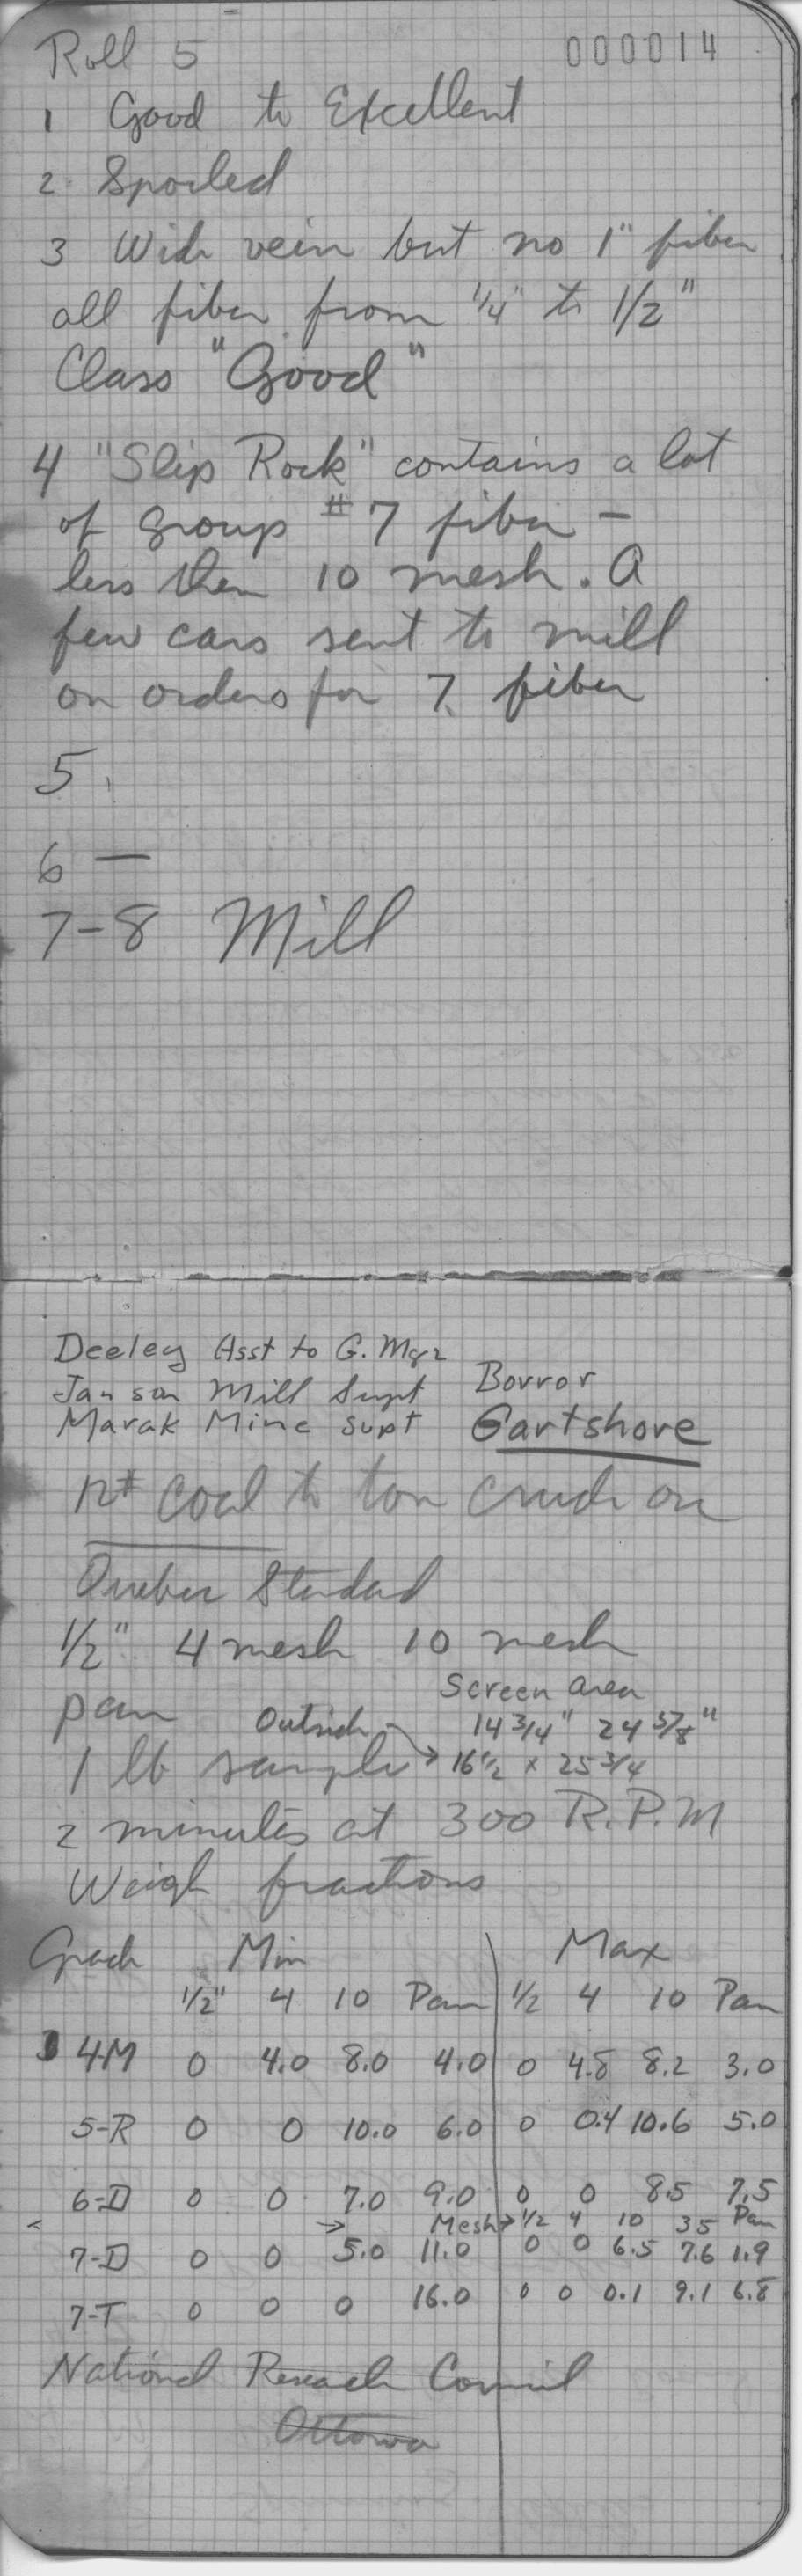 Roll 5 000014
1 Good to Excellent
2 Spoiled
3 Wide vein but no 1" fiber
all fiber from 1/4" to 1/2"
Class "Good"
4 "Slip Rock" contains a lot
of group #7 fiber -
less then 10 mesh. A
few cars sent to mill
on orders for 7 fiber
5
6 —
7-8 Mill
Deeley Asst to G. Mgr
Janson Mill Supt Borror
Marak Mine Supt Gartshore
12# coal to ton crude ore
Quebec Standard
1/2" 4 mesh 10 mesh
pan
Screen area
Outside 14 3/4" 24 5/8"
1 lb sample → 16 1/2 x 25 3/4
2 minutes at 300 R.P.M
Weigh fractions
Grade Min Max
1/2" 4 10 Pan 1/2 4 10 Pan
4-M 0 4.0 8.0 4.0 0 4.8 8.2 3.0
5-R 0 0 10.0 6.0 0 0.4 10.6 5.0
6-D 0 0 7.0 9.0 0 0 8.5 7.5
Mesh → 1/2 4 10 35 Pan
7-D 0 0 5.0 11.0 0 0 6.5 7.6 1.9
7-T 0 0 0 16.0 0 0 0.1 9.1 6.8
National Research Council
Ottawa